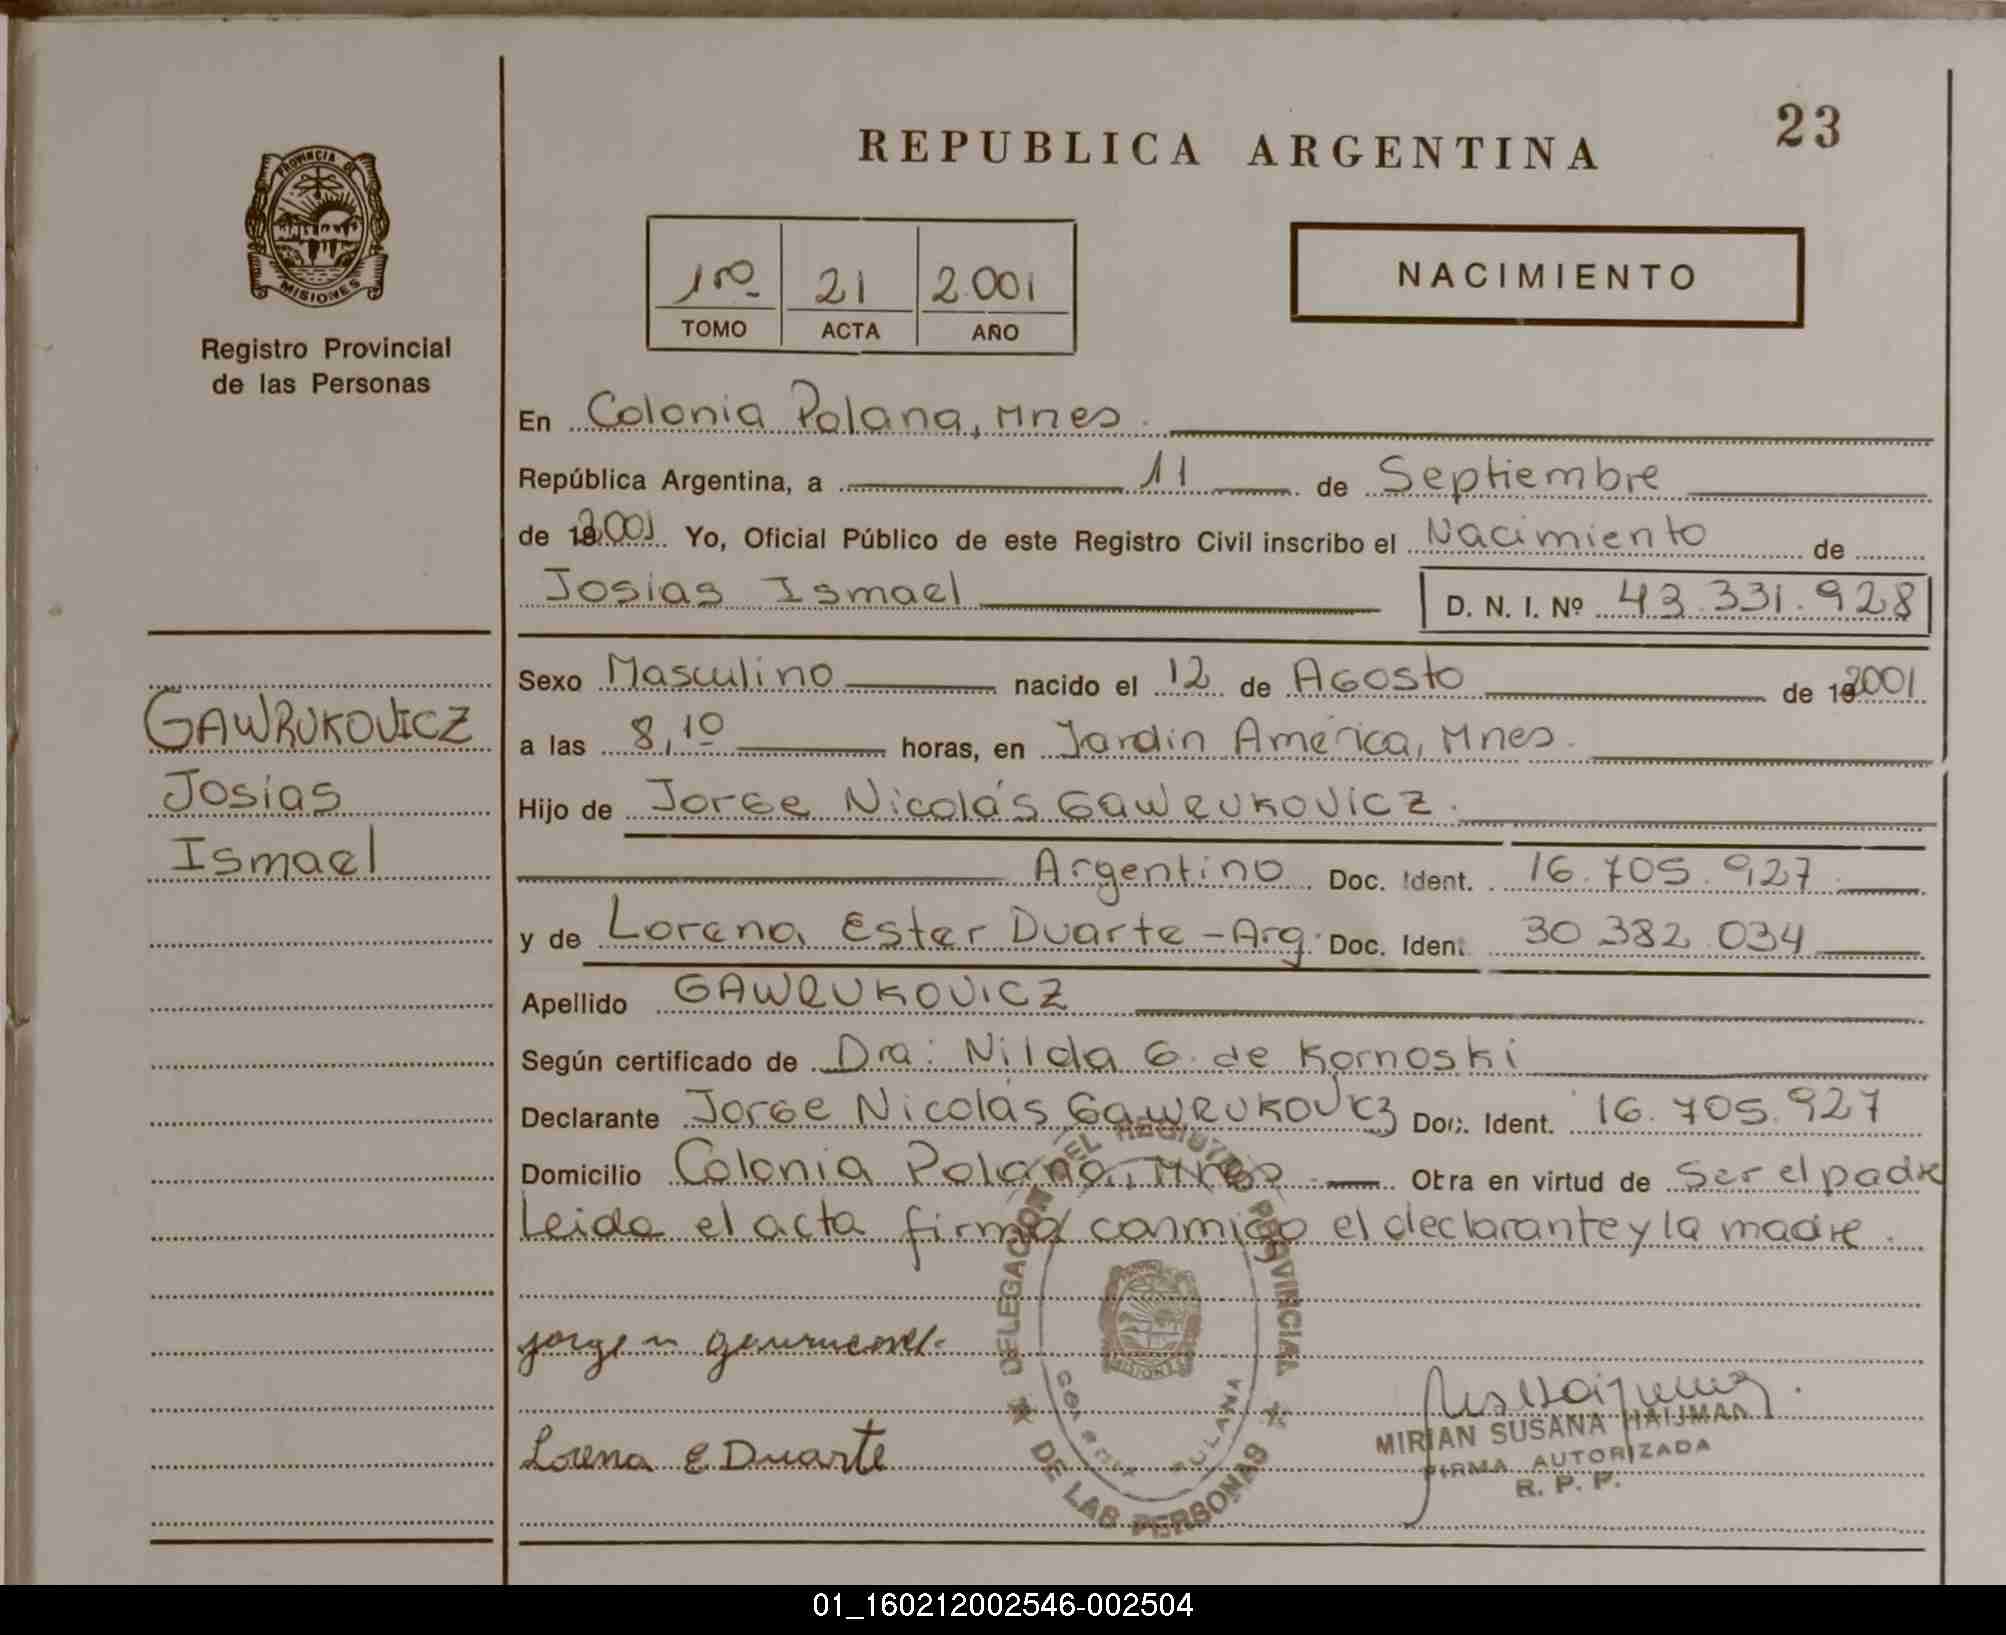 23
REPUBLICA ARGENTINA
PROVINCIA DE
MISIONES
Registro Provincial
de las Personas
1ro 21 2.001
TOMO ACTA AÑO
NACIMIENTO
En Colonia Polana, Mnes.
República Argentina, a 11 de Septiembre
de 2001 Yo, Oficial Público de este Registro Civil inscribo el Nacimiento de
Josias Ismael D. N. I. Nº 43.331.928
Sexo Masculino nacido el 12 de Agosto de 2001
a las 8,10 horas, en Jardin América, Mnes.
Hijo de Jorge Nicolás Gawrukovicz.
Argentino Doc. Ident. 16.705.927
y de Lorena Ester Duarte - Arg. Doc. Iden. 30 382 034
Apellido GAWRUKOVICZ
Según certificado de Dra: Nilda G. de Kornoski
Declarante Jorge Nicolás Gawrukovicz Doc. Ident. 16.705.927
Domicilio Colonia Polana, Mnes Obra en virtud de Ser el padre
Leida el acta firma conmigo el declarante y la madre.
GAWRUKOVICZ
Josias
Ismael
jorge n
Lorena E Duarte
DELEGACION DEL REGISTRO PROVINCIAL
DE LAS PERSONAS
COLONIA POLANA
MIRIAN SUSANA HAIJMAN
FIRMA AUTORIZADA
R. P. P.
01_160212002546-002504